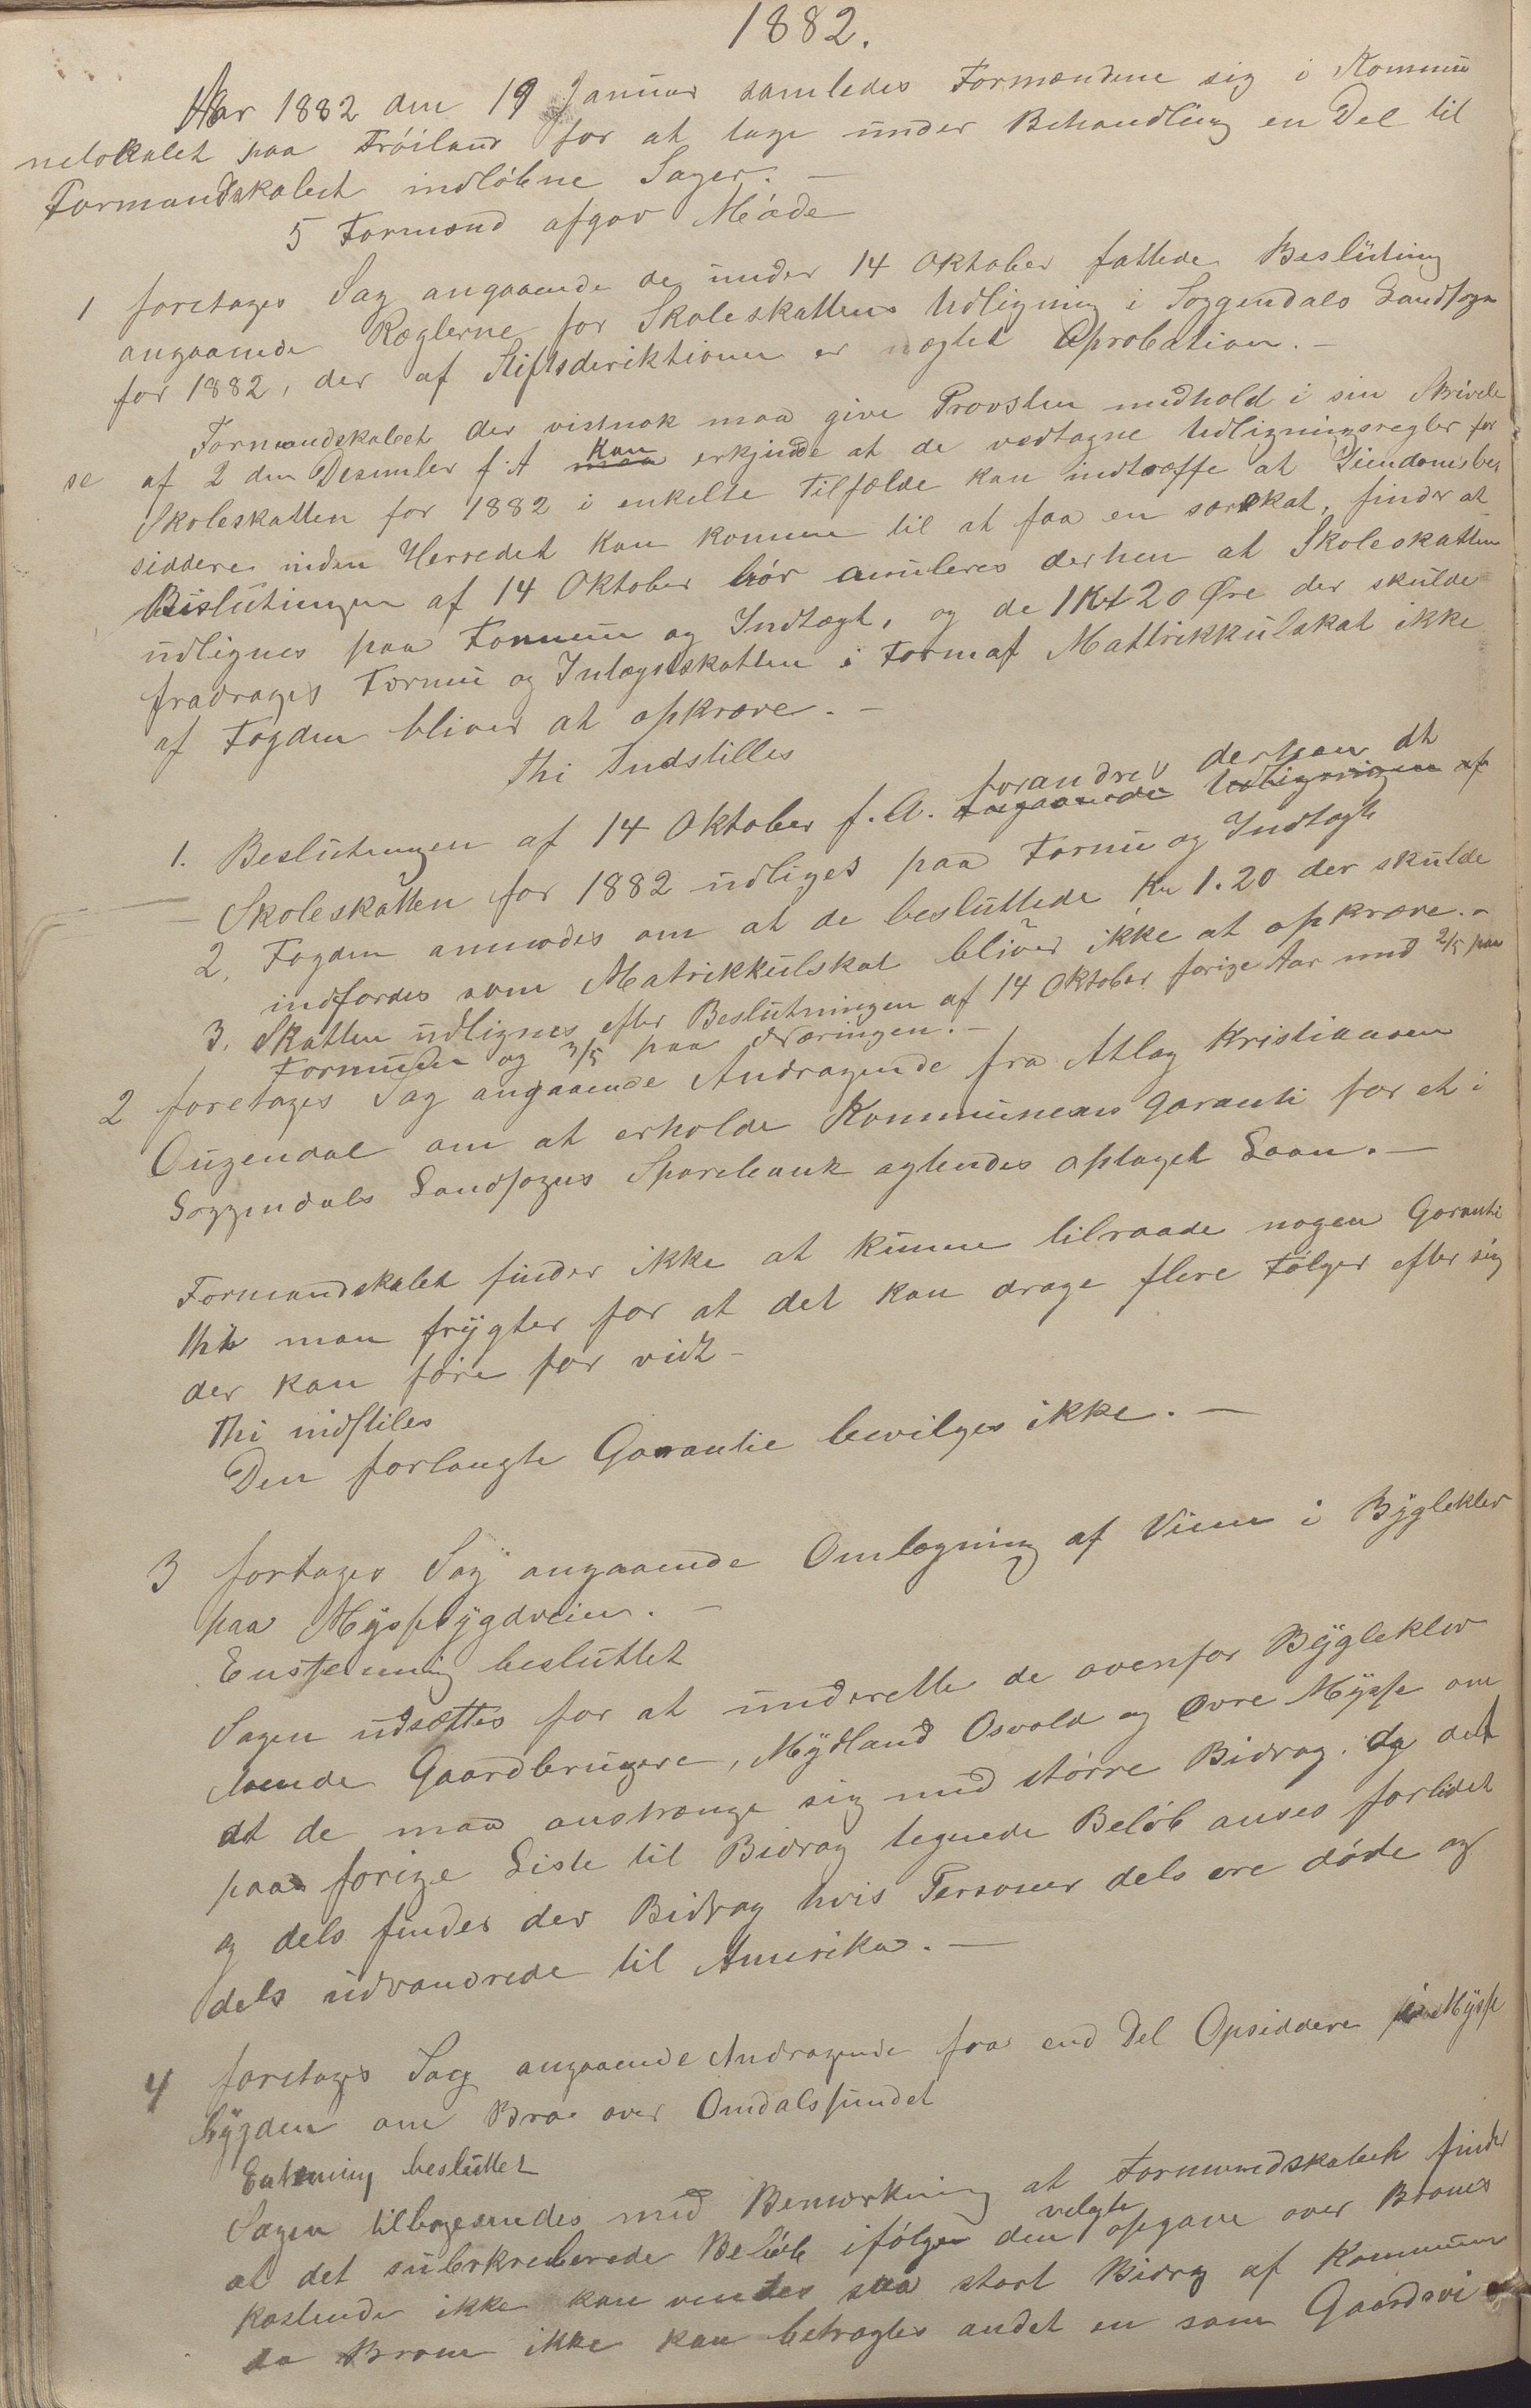 1882.
Aar 1882 den 19 Januar samledes Formændene sig i Kommu
nelokalet paa Tróiland for at tage under Behandling en Del til
Formandskabet indlóbne Sager. —
5 Formænd afgav Móde
1 foretages Sag angaaende de under 14 Oktober fattede Beslutning
angaaende Reglerne for Skoleskattens Udligning i Soggendals Landsogn
for 1882, der af Stiftsderiktionen er nægtet Aprobation. —
Formandskabet der vistnok maa give Provsten medhold i sin Skrivel
se af 2 den Desember f. A kan erkjende at de vedtagne Udligningsregler for
Skoleskatten for 1882 i enkelte Tilfælde kan indtræffe at Jiendomsbe
siddere inden Herredet kan komme til at faa en særskat, finder at
Beslutingen af 14 Oktober bór anuleres derhen at Skoleskatten
udlignes paa Formue og Indtægt, og de 1 Kr 20 Øre der skulde
fradrages Formu og Intægtskatten i Form af Mattrikkulskat ikke
af Fogden bliver at opkræve. —
Thi Indstilles
forandres derhen at
1. Beslutningen af 14 Oktober f. A. angaaende Udligningen af
— Skoleskatten for 1882 udliges paa Formu og Indtægt
2. Fogden anmodes om at de besluttede Kr 1.20 der skulde
indfordes som Matrikkulskat bliver ikke at opkræve. –
3. Skatten udlignes efter Beslutningen af 14 Oktober forige Aar med 2/5 paa
Formuen og 3/5 paa Næringen. —
2 foretages Sag angaaende Andragende fra Atlag Kristiansen
Ougendal om at erholde Kommunens Garanti for et i
Soggendals Landsogns Sparebank agtendes optaget Laan. —
Formandskabet finder ikke at kunne tilraade nogen Garanti
thi man frygter for at det kan drage flere Fólger efter sig
der kan fóre for vidt –
Thi indstiles
Den forlangte Garantie bevilges ikke. —
3 fortages Sag angaaende Omlægning af Veien i Bygleklev
paa Myssebygdveien. —
Enstemmig besluttet
Sagen udsættes for at underette de ovenfor Bygleklev
boende Gaardbrugere, Mydland Osvold og Øvre Mysse om
at de maa anstrænge sig med stórre Bidrag. da det
paa forige Liste til Bidrag tegnede Belób anses forlidet
og dels findes der Bidrag hvis Personer dels ere dóde og
dels udvandrede til Amerika. —
4 foretages Sag angaaende Andragende fra end Del Opsiddere i Mysse
bygden om Bro over Omdalssundet
Entemig besluttet
Sagen tilbagesendes med Bemærkning at Formandskabet finder
at det suberkreberede Belób ifólge den vedlagte opgave over Broens
kostende ikke kan ventes saa stort Bidrag af Kommunen
da Broen ikke kan betragtes andet en som Gaardsvei